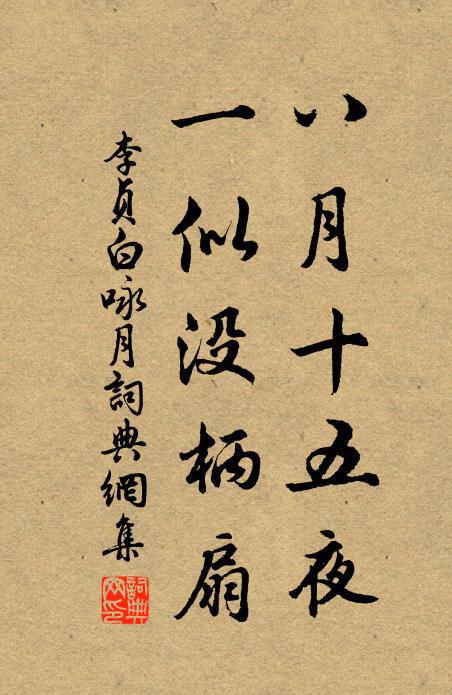 八月十五夜
一似没柄扇
李貞白咏月詞典網集
詞典网印